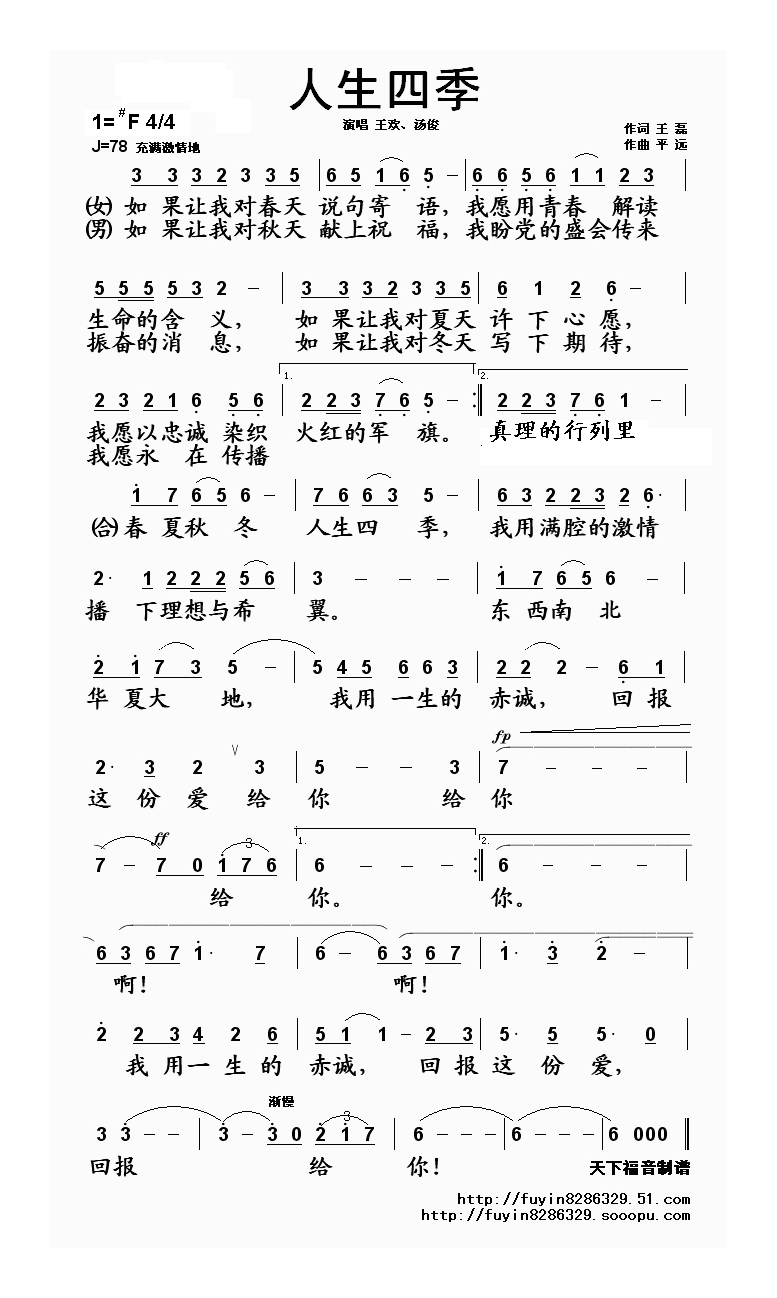 人生四季
1=#F 4/4
演唱 王欢、汤俊
作词 王 磊
J=78 充满激情地
作曲 平 远
3 3 3 2 3 3 5 | 6 5 1 6 5 – | 6 6 5 6 1 1 2 3 |
(女) 如 果让我对春天 说句寄 语，我愿用青春 解读
(男) 如 果让我对秋天 献上祝 福，我盼党的盛会传来
5 5 5 5 3 2 – | 3 3 3 2 3 3 5 | 6 1 2 6 – |
生命的含 义， 如 果让我对夏天 许 下 心 愿，
振奋的消 息， 如 果让我对冬天 写 下 期 待，
1. 2.
2 3 2 1 6 5 6 | 2 2 3 7 6 5 – :‖ 2 2 3 7 6 1 – |
我愿以忠诚 染织 火红的军 旗。 真理的行列里
我愿永 在 传播
1 7 6 5 6 – | 7 6 6 3 5 – | 6 3 2 2 3 2 6· |
(合) 春 夏秋 冬 人生四 季， 我用满腔的激情
2· 1 2 2 2 5 6 | 3 – – – | 1 7 6 5 6 – |
播 下理想与希 翼。 东 西南 北
2 1 7 3 5 – | 5 4 5 6 6 3 | 2 2 2 – 6 1 |
华 夏大 地， 我用 一生的 赤诚， 回 报
fp
2· 3 2 ∨ 3 | 5 – – 3 | 7 – – – |
这 份 爱 给 你 给 你
ff 3 1. 2.
7 – 7 0 1 7 6 | 6 – – – :‖ 6 – – – |
给 你。 你。
6 3 6 7 1· 7 | 6 – 6 3 6 7 | 1· 3 2 – |
啊！ 啊！
2 2 3 4 2 6 | 5 1 1 – 2 3 | 5· 5 5· 0 |
我 用一 生 的 赤诚， 回 报 这 份 爱，
渐慢 3
3 3 – – | 3 – 3 0 2 1 7 | 6 – – – | 6 – – – | 6 0 0 0 ‖
回报 给 你！ 天下福音制谱
http://fuyin8286329.51.com
http://fuyin8286329.sooopu.com